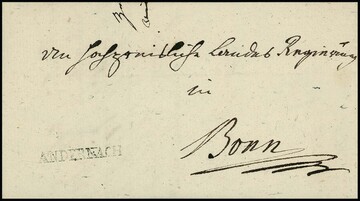 An hochpreisliche Landes Regierung
in
Bonn
ANDERNACH